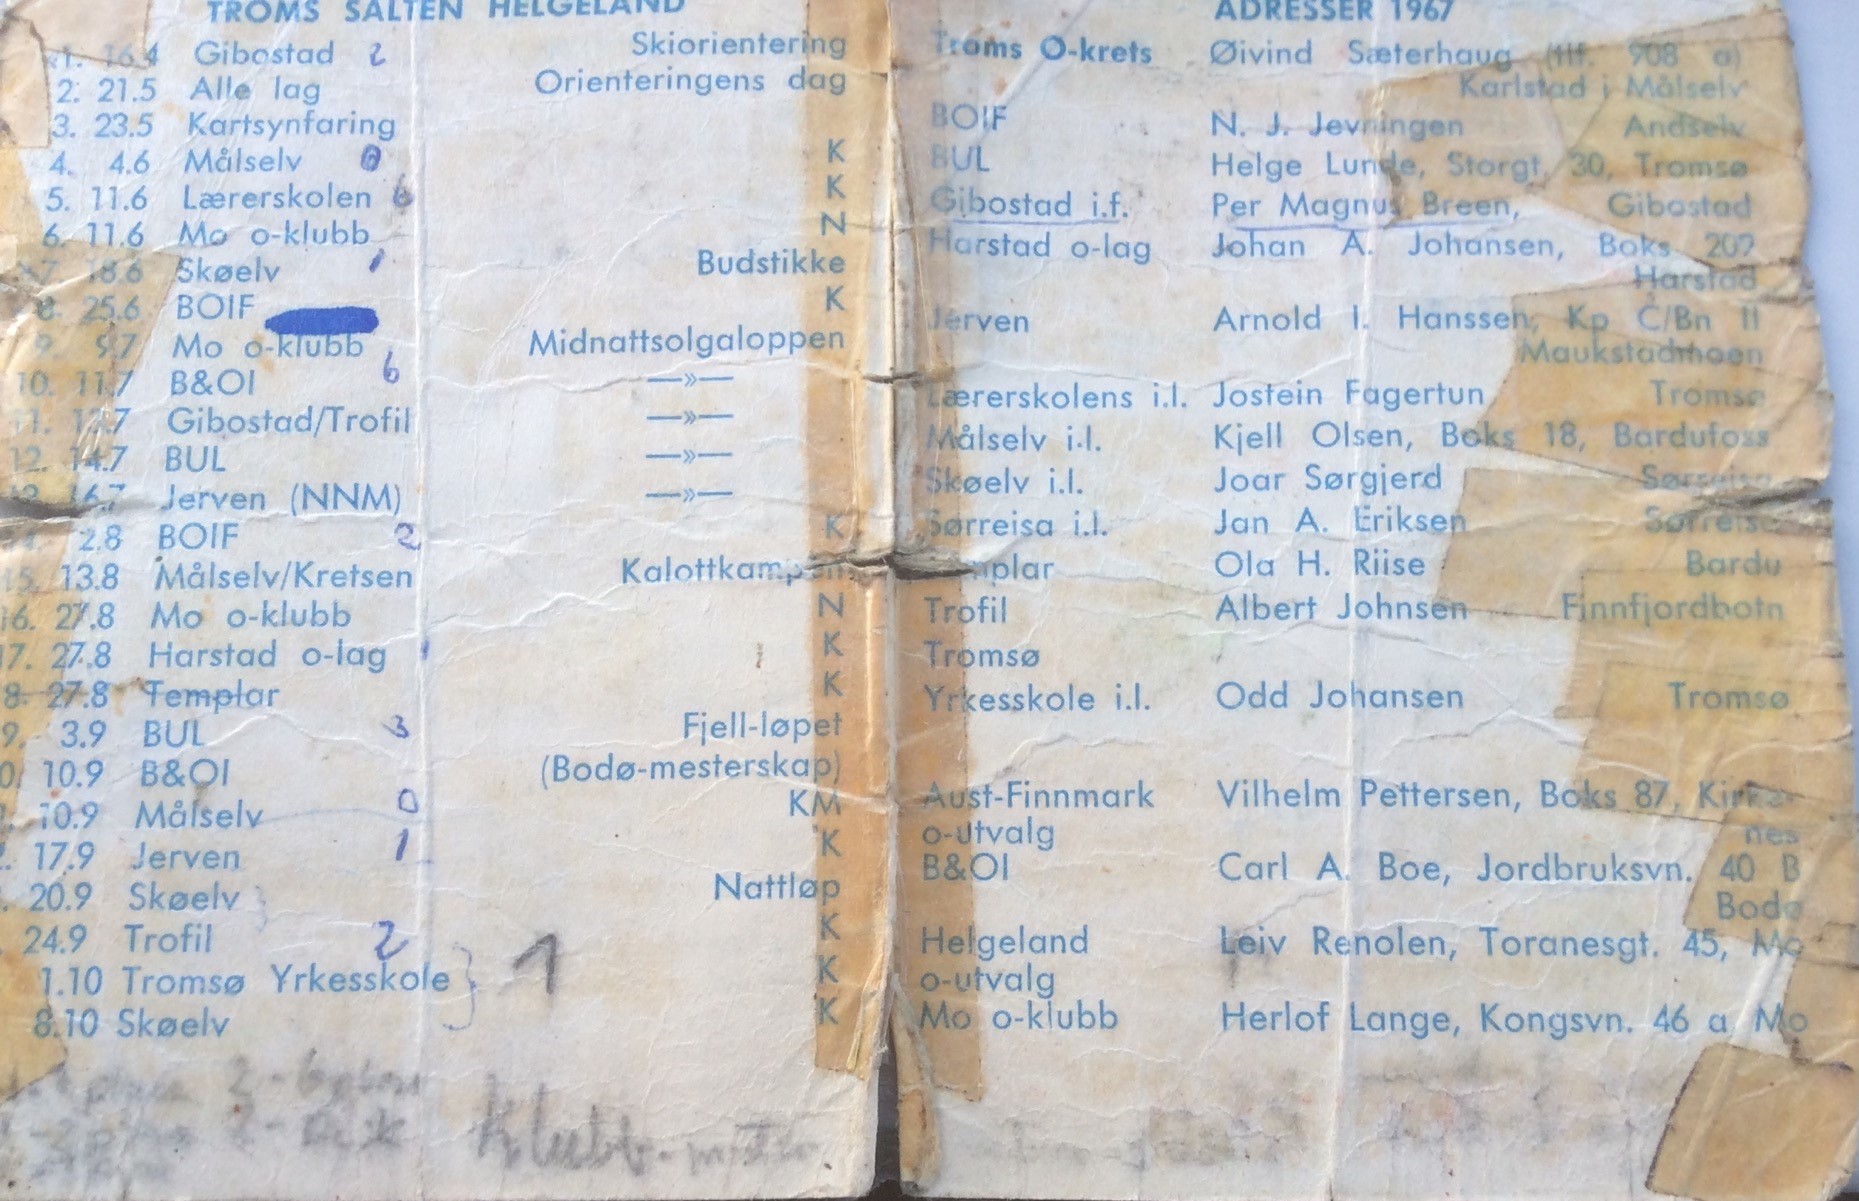 TROMS SALTEN HELGELAND
1. 16.4 Gibostad 2 Skiorientering
2. 21.5 Alle lag Orienteringens dag
3. 23.5 Kartsynfaring
4. 4.6 Målselv 0 K
5. 11.6 Lærerskolen 6 K
6. 11.6 Mo o-klubb N
7. 18.6 Skøelv 1 Budstikke
8. 25.6 BOIF K
9. 9.7 Mo o-klubb Midnattsolgaloppen
10. 11.7 B&OI 6 —»—
11. 12.7 Gibostad/Trofil —»—
12. 14.7 BUL —»—
13. 16.7 Jerven (NNM) —»—
2.8 BOIF 2 K
15. 13.8 Målselv/Kretsen Kalottkampen
16. 27.8 Mo o-klubb N
17. 27.8 Harstad o-lag 1 K
8. 27.8 Templar K
9. 3.9 BUL 3 Fjell-løpet
0. 10.9 B&OI (Bodø-mesterskap)
10.9 Målselv 0 KM
17.9 Jerven 1 K
20.9 Skøelv Nattløp
24.9 Trofil 2 K
1.10 Tromsø Yrkesskole 1 K
8.10 Skøelv K
Klubb-
ADRESSER 1967
Troms O-krets Øivind Sæterhaug (tlf. 908 a)
Karlstad i Målselv
BOIF N. J. Jevningen Andselv
BUL Helge Lunde, Storgt. 30, Tromsø
Gibostad i.f. Per Magnus Breen, Gibostad
Harstad o-lag Johan A. Johansen, Boks 207
Harstad
Jerven Arnold I. Hanssen, Kp C/Bn II
Maukstadmoen
Lærerskolens i.l. Jostein Fagertun Tromsø
Målselv i.l. Kjell Olsen, Boks 18, Bardufoss
Skøelv i.l. Joar Sørgjerd Sørreisa
Sørreisa i.l. Jan A. Eriksen Sørreisa
Templar Ola H. Riise Bardu
Trofil Albert Johnsen Finnfjordbotn
Tromsø
Yrkesskole i.l. Odd Johansen Tromsø
Aust-Finnmark Vilhelm Pettersen, Boks 87, Kirke-
o-utvalg nes
B&OI Carl A. Boe, Jordbruksvn. 40 B
Bodø
Helgeland Leiv Renolen, Toranesgt. 45, Mo
o-utvalg
Mo o-klubb Herlof Lange, Kongsvn. 46 a Mo